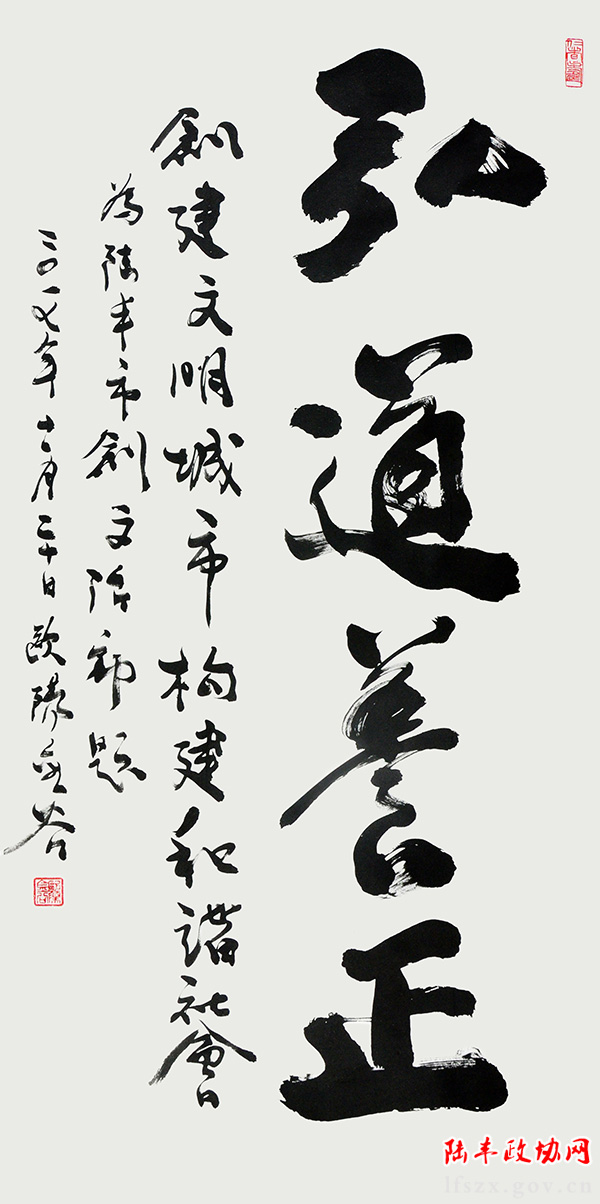 弘道養正
創建文明城市构建和諧社會
為陸丰市創文題
二〇一七年十一月二十日歐陽谷
陆丰政协网
lfszx.gov.cn